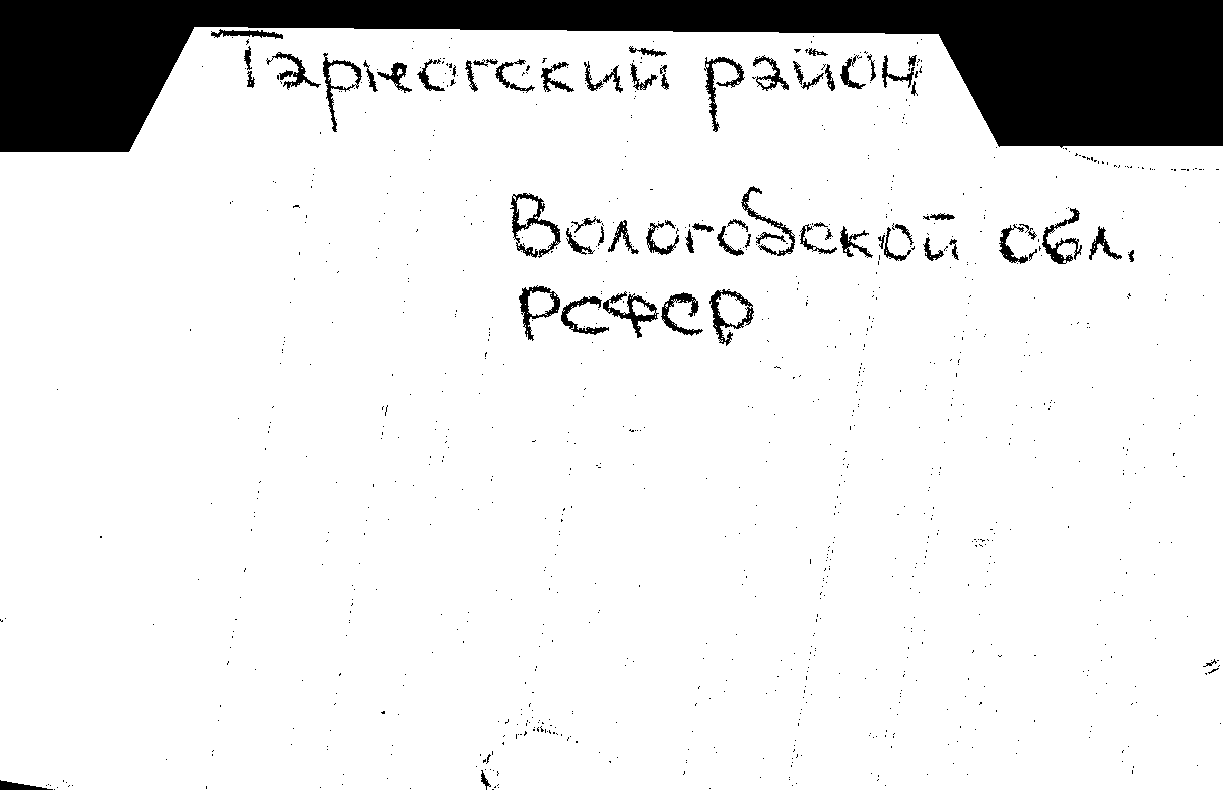 Тарногский район
Вологодской обл.
РСФСР